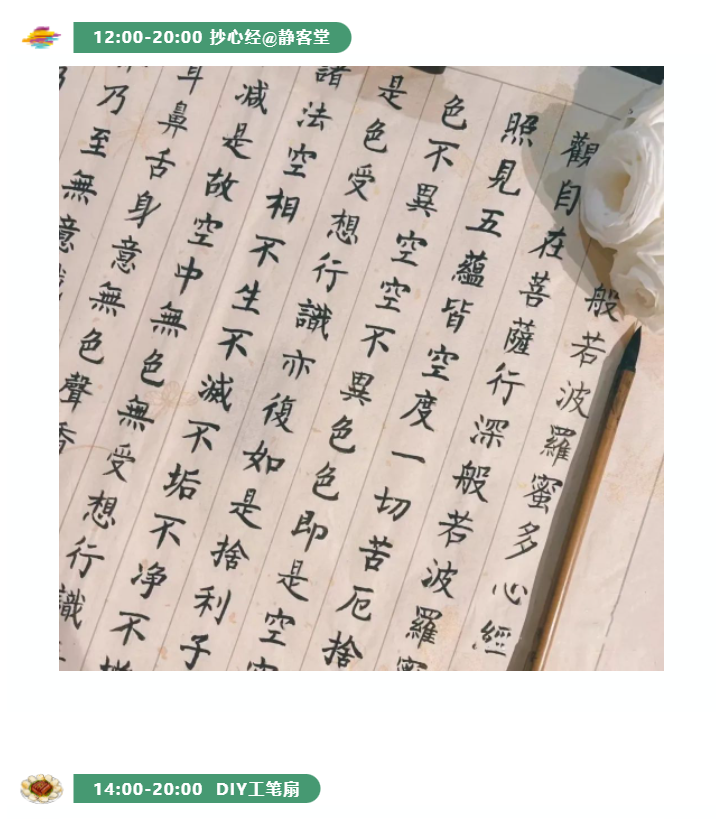 12:00-20:00 抄心经@静客堂
般若波羅蜜多心經
觀自在菩薩行深般若波羅蜜
照見五蘊皆空度一切苦厄捨
色不異空空不異色色即是空空
是色受想行識亦復如是捨利子
諸法空相不生不滅不垢不净不增
减是故空中無色無受想行識
耳鼻舌身意無色聲香
乃至無意
14:00-20:00 DIY工笔扇